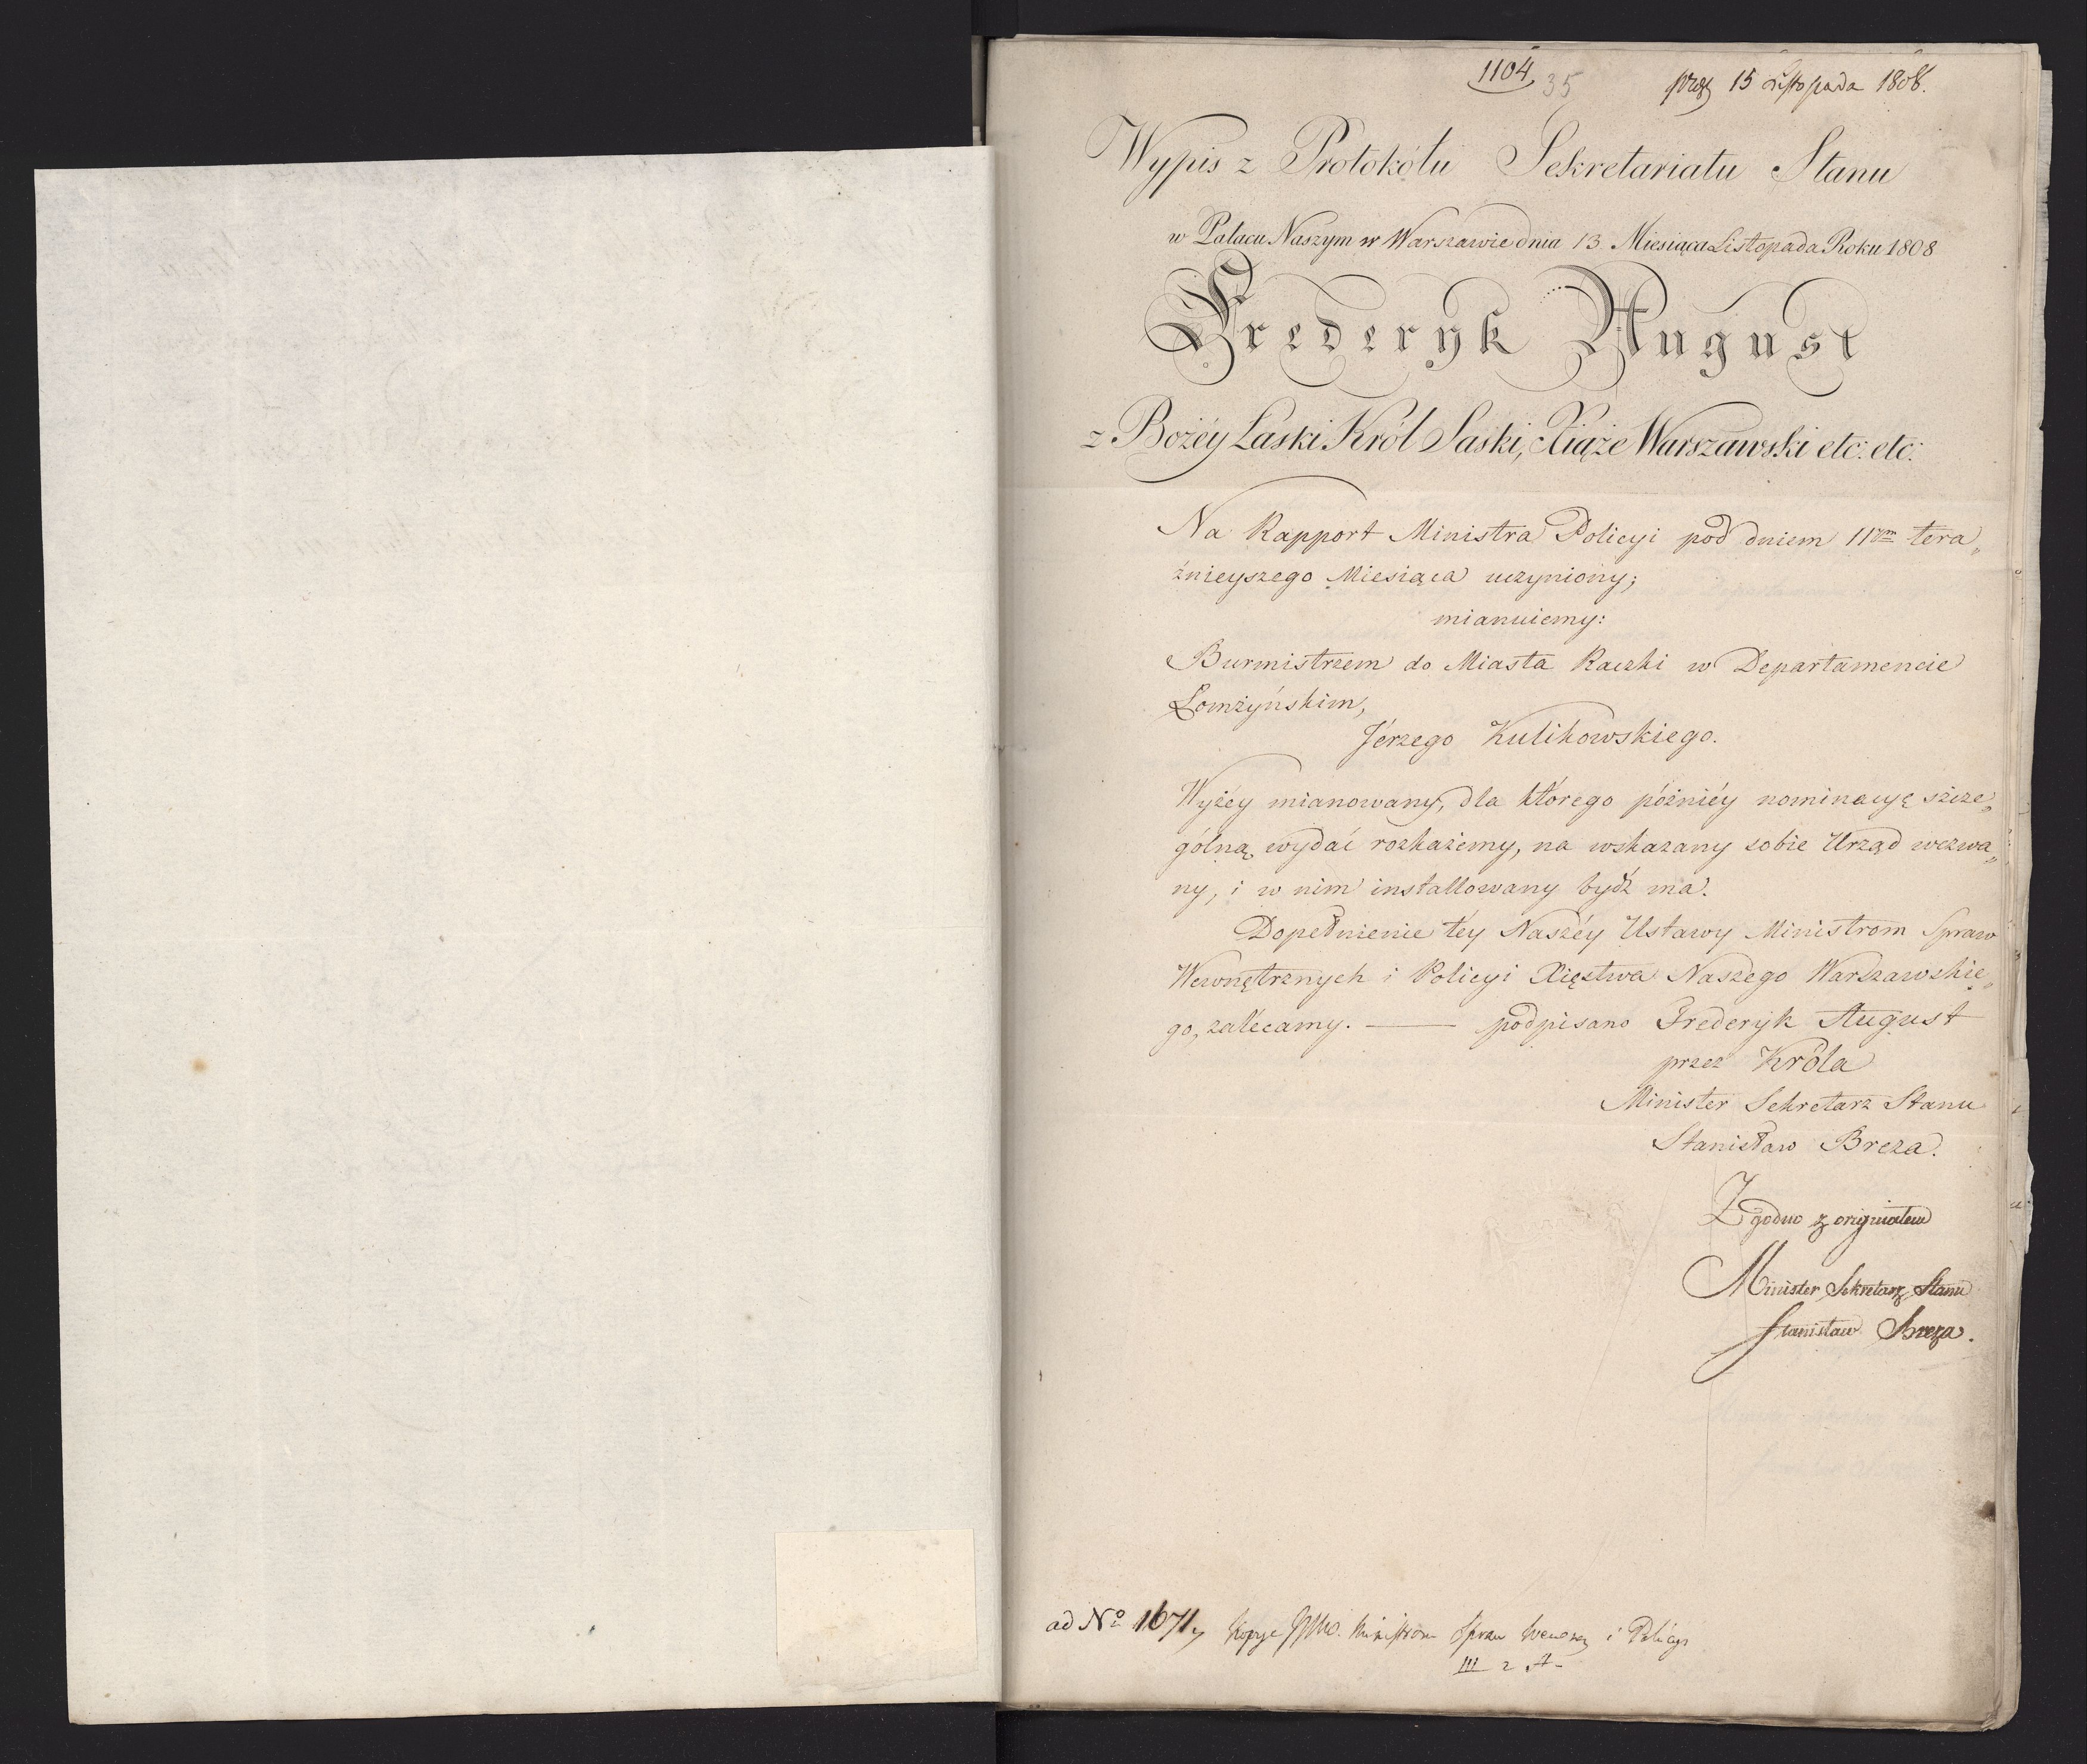 1104 35 15 Listopada 1808.
Wypis z Protokółu Sekretariatu Stanu
w Pałacu Naszym w Warszawie dnia 13 Miesiąca Listopada Roku 1808
Frederyk August
z Bożéy Łaski Król Saski, Xiąże Warszawski etc: etc:
Na Rapport Ministra Policyi pod dniem 11ym tera„
źnieyszego Miesiąca uczyniony;
mianuiemy:
Burmistrzem do Miasta Raczki w Departamencie
Łomżyńskim,
Jérzego Kulikowskiego.
Wyżéy mianowany, dla którego późniéy nominacyę szcze„
gólną wydać rozkażemy, na wskazany sobie Urząd wezwa„
ny, i w nim installowany bydź ma.
Dopełnienie téy Naszéy Ustawy Ministrom Spraw
Wewnętrznych i Policyi Xięstwa Naszego Warszawskie„
go, zalécamy. — podpisano Frederyk August
przez Króla
Minister Sekretarz Stanu
Stanisław Breza.
Zgodno z oryginałem
Minister Sekretarz Stanu
Stanisław Breza.
ad No 1671, Kopye JWW. Ministrom Spraw Wewnę i Policyi
III 2 A-